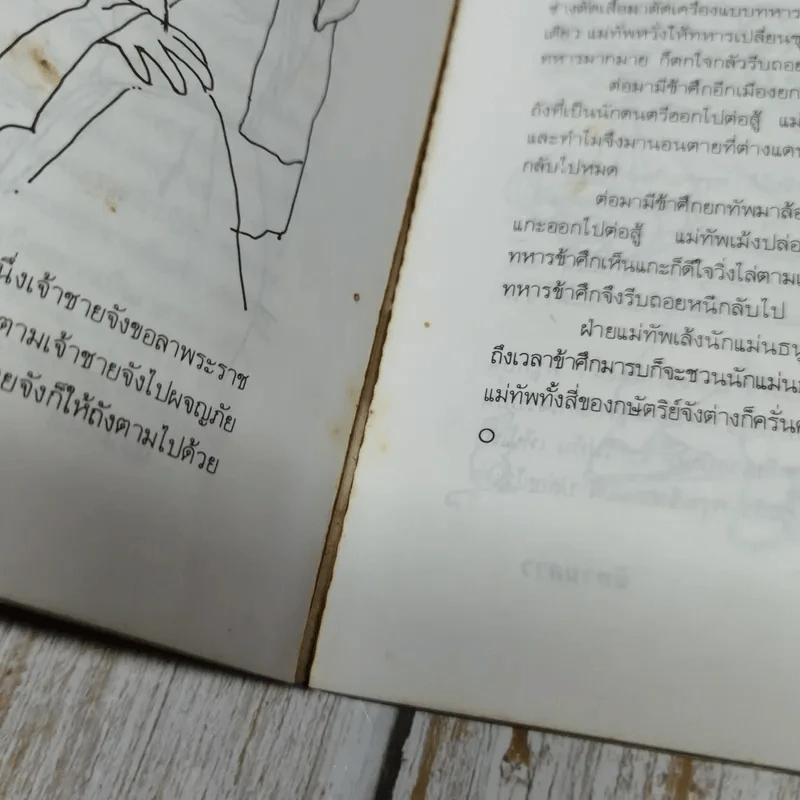 นึ่งเจ้าชายจังขอลาพระราช
ตามเจ้าชายจังไปผจญภัย
ยจังก็ให้ถังตามไปด้วย
ช่างตัดเสื้อมาตัดเครื่องแบบทหาร
เดียว แม่ทัพหวังให้ทหารเปลี่ยนชุ
ทหารมากมาย ก็ตกใจกลัวรีบถอย
ต่อมามีข้าศึกอีกเมืองยก
ถังที่เป็นนักดนตรีออกไปต่อสู้ แม่
และทำไมจึงมานอนตายที่ต่างแดน
กลับไปหมด
ต่อมามีข้าศึกยกทัพมาล้อ
แกะออกไปต่อสู้ แม่ทัพเม้งปล่อ
ทหารข้าศึกเห็นแกะก็ดีใจวิ่งไล่ตาม
ทหารข้าศึกจึงรีบถอยหนีกลับไป
ฝ่ายแม่ทัพเล้งนักแม่นธนู
ถึงเวลาข้าศึกมารบก็จะชวนนักแม่น
แม่ทัพทั้งสี่ของกษัตริย์จังต่างก็ครั่น